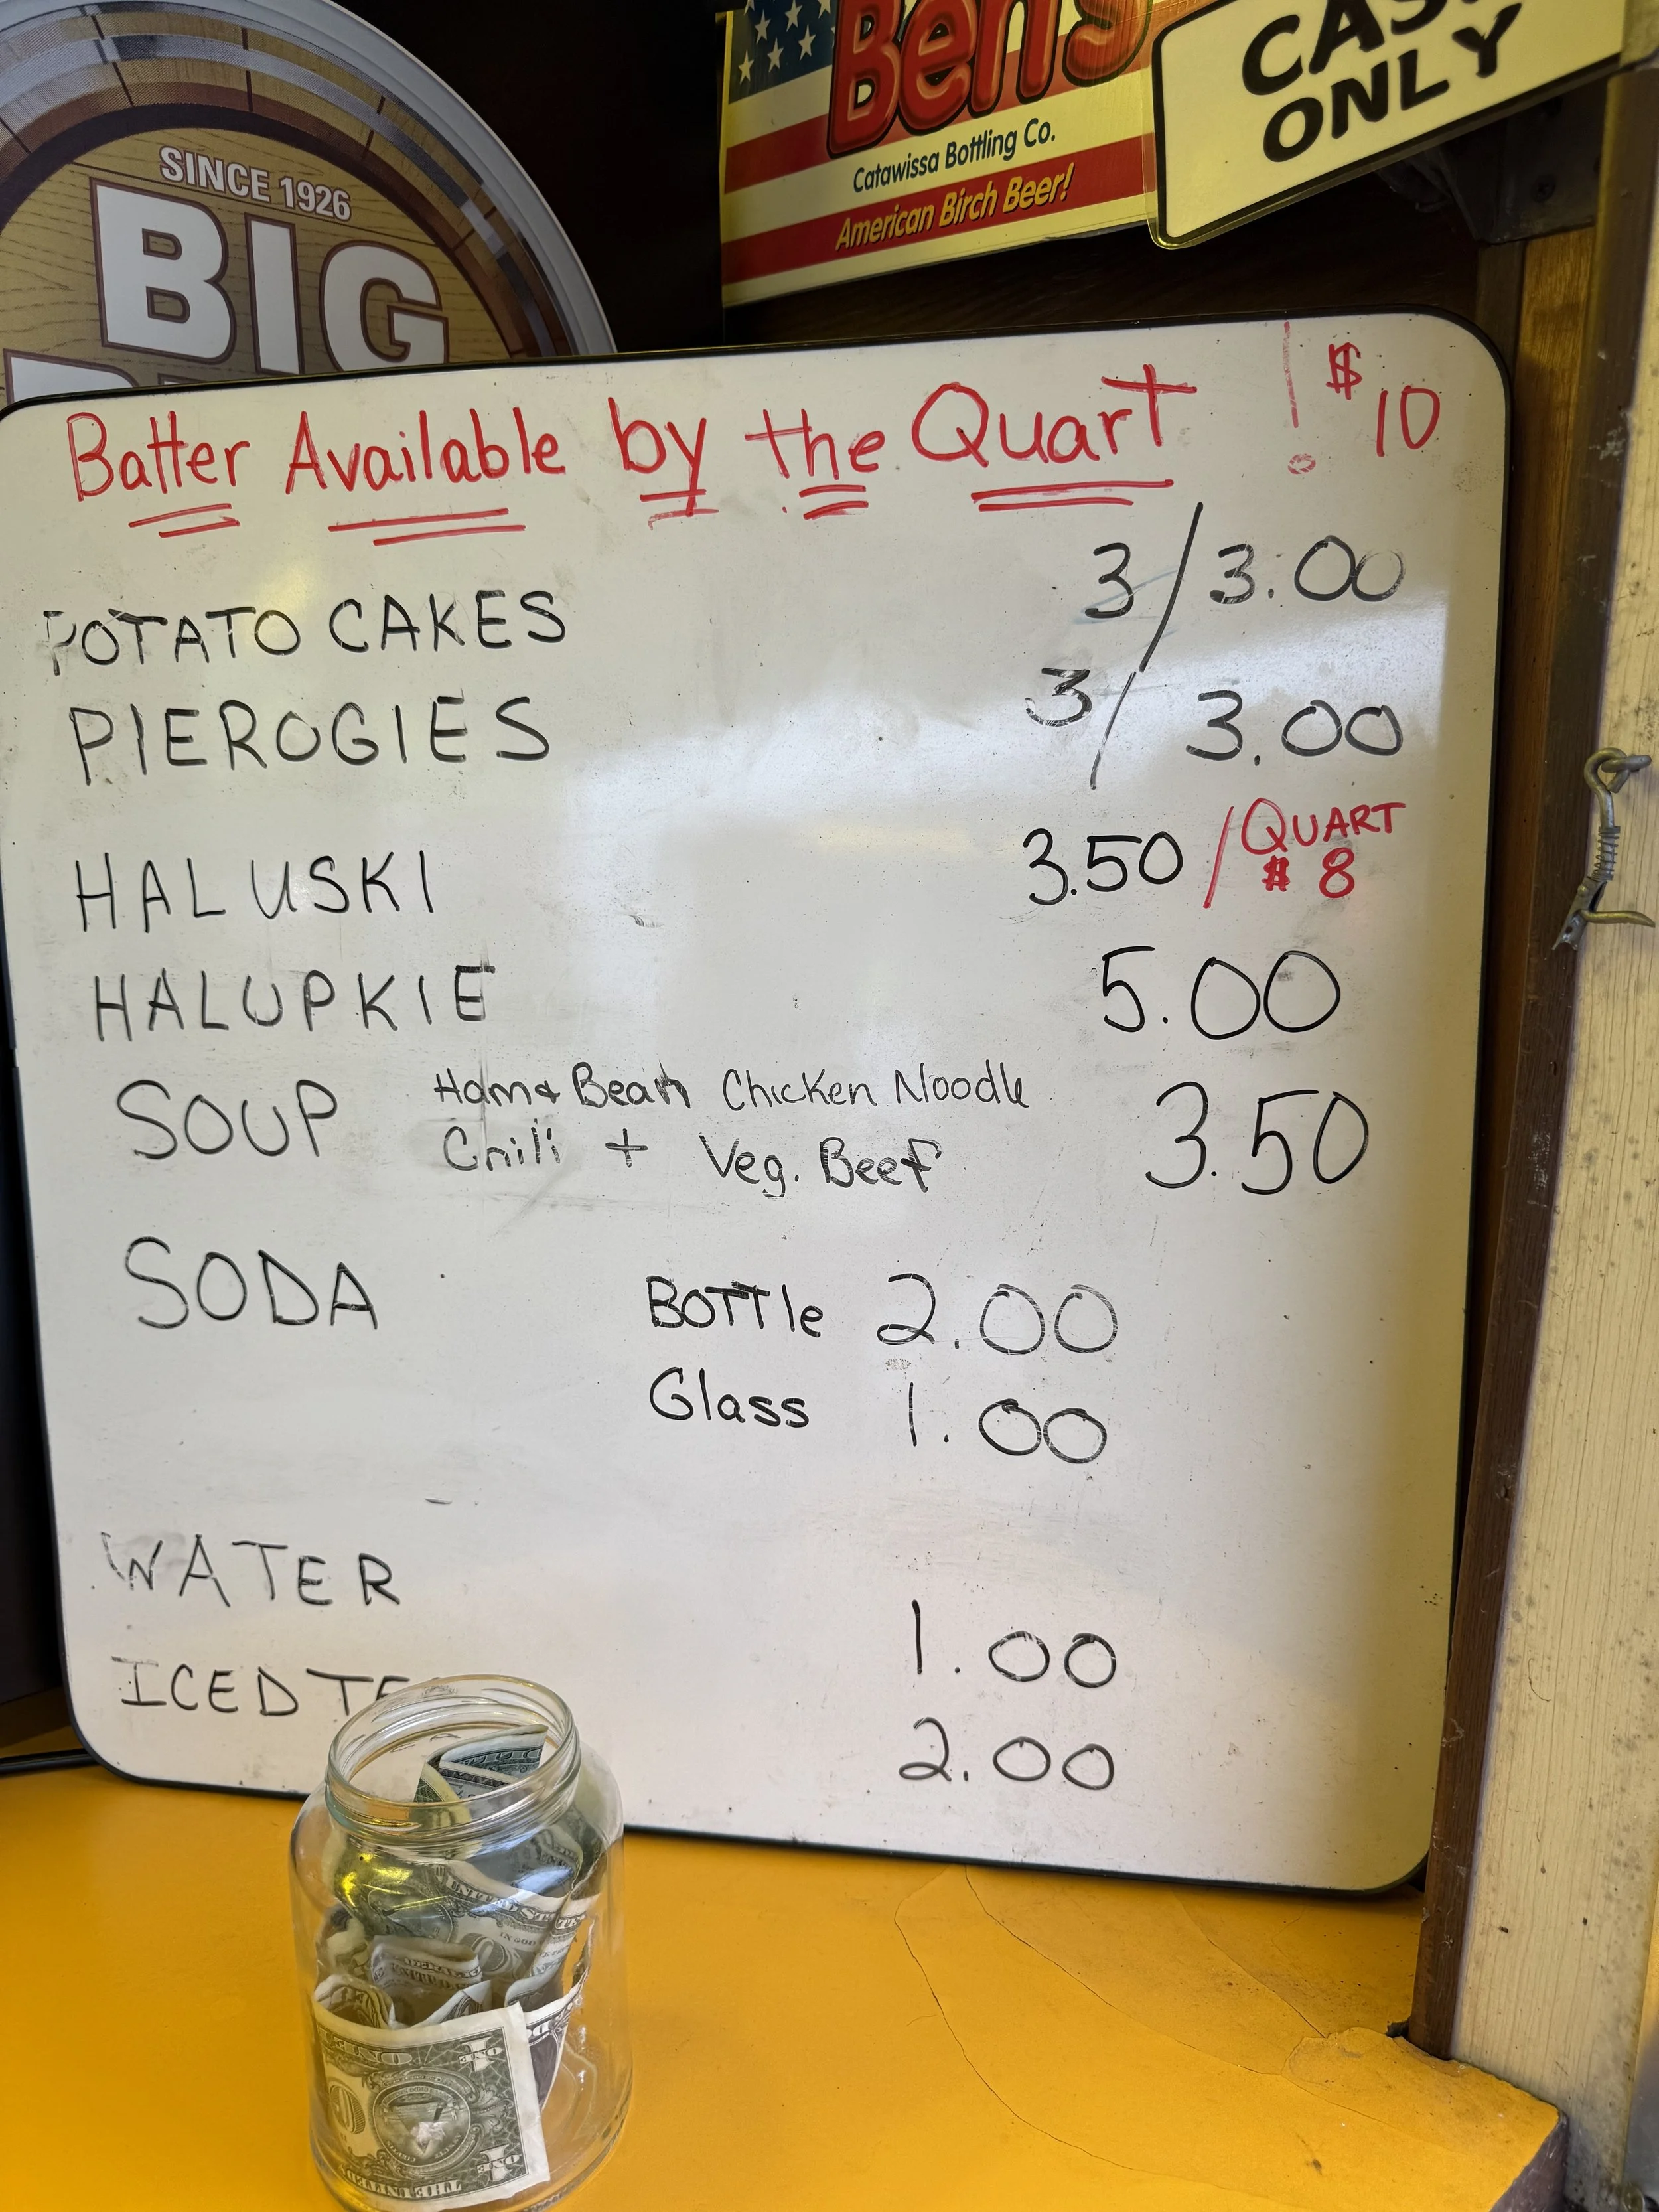 SINCE 1926
BIG
Ben's
Catawissa Bottling Co.
American Birch Beer!
ONLY
Batter Available by the Quart ! $10
POTATO CAKES 3/3.00
PIEROGIES 3/ 3.00
HALUSKI 3.50 / QUART $8
HALUPKIE 5.00
SOUP Ham & Bean Chicken Noodle 3.50
Chili + Veg. Beef
SODA BOTTle 2.00
Glass 1.00
WATER 1.00
ICED TE 2.00